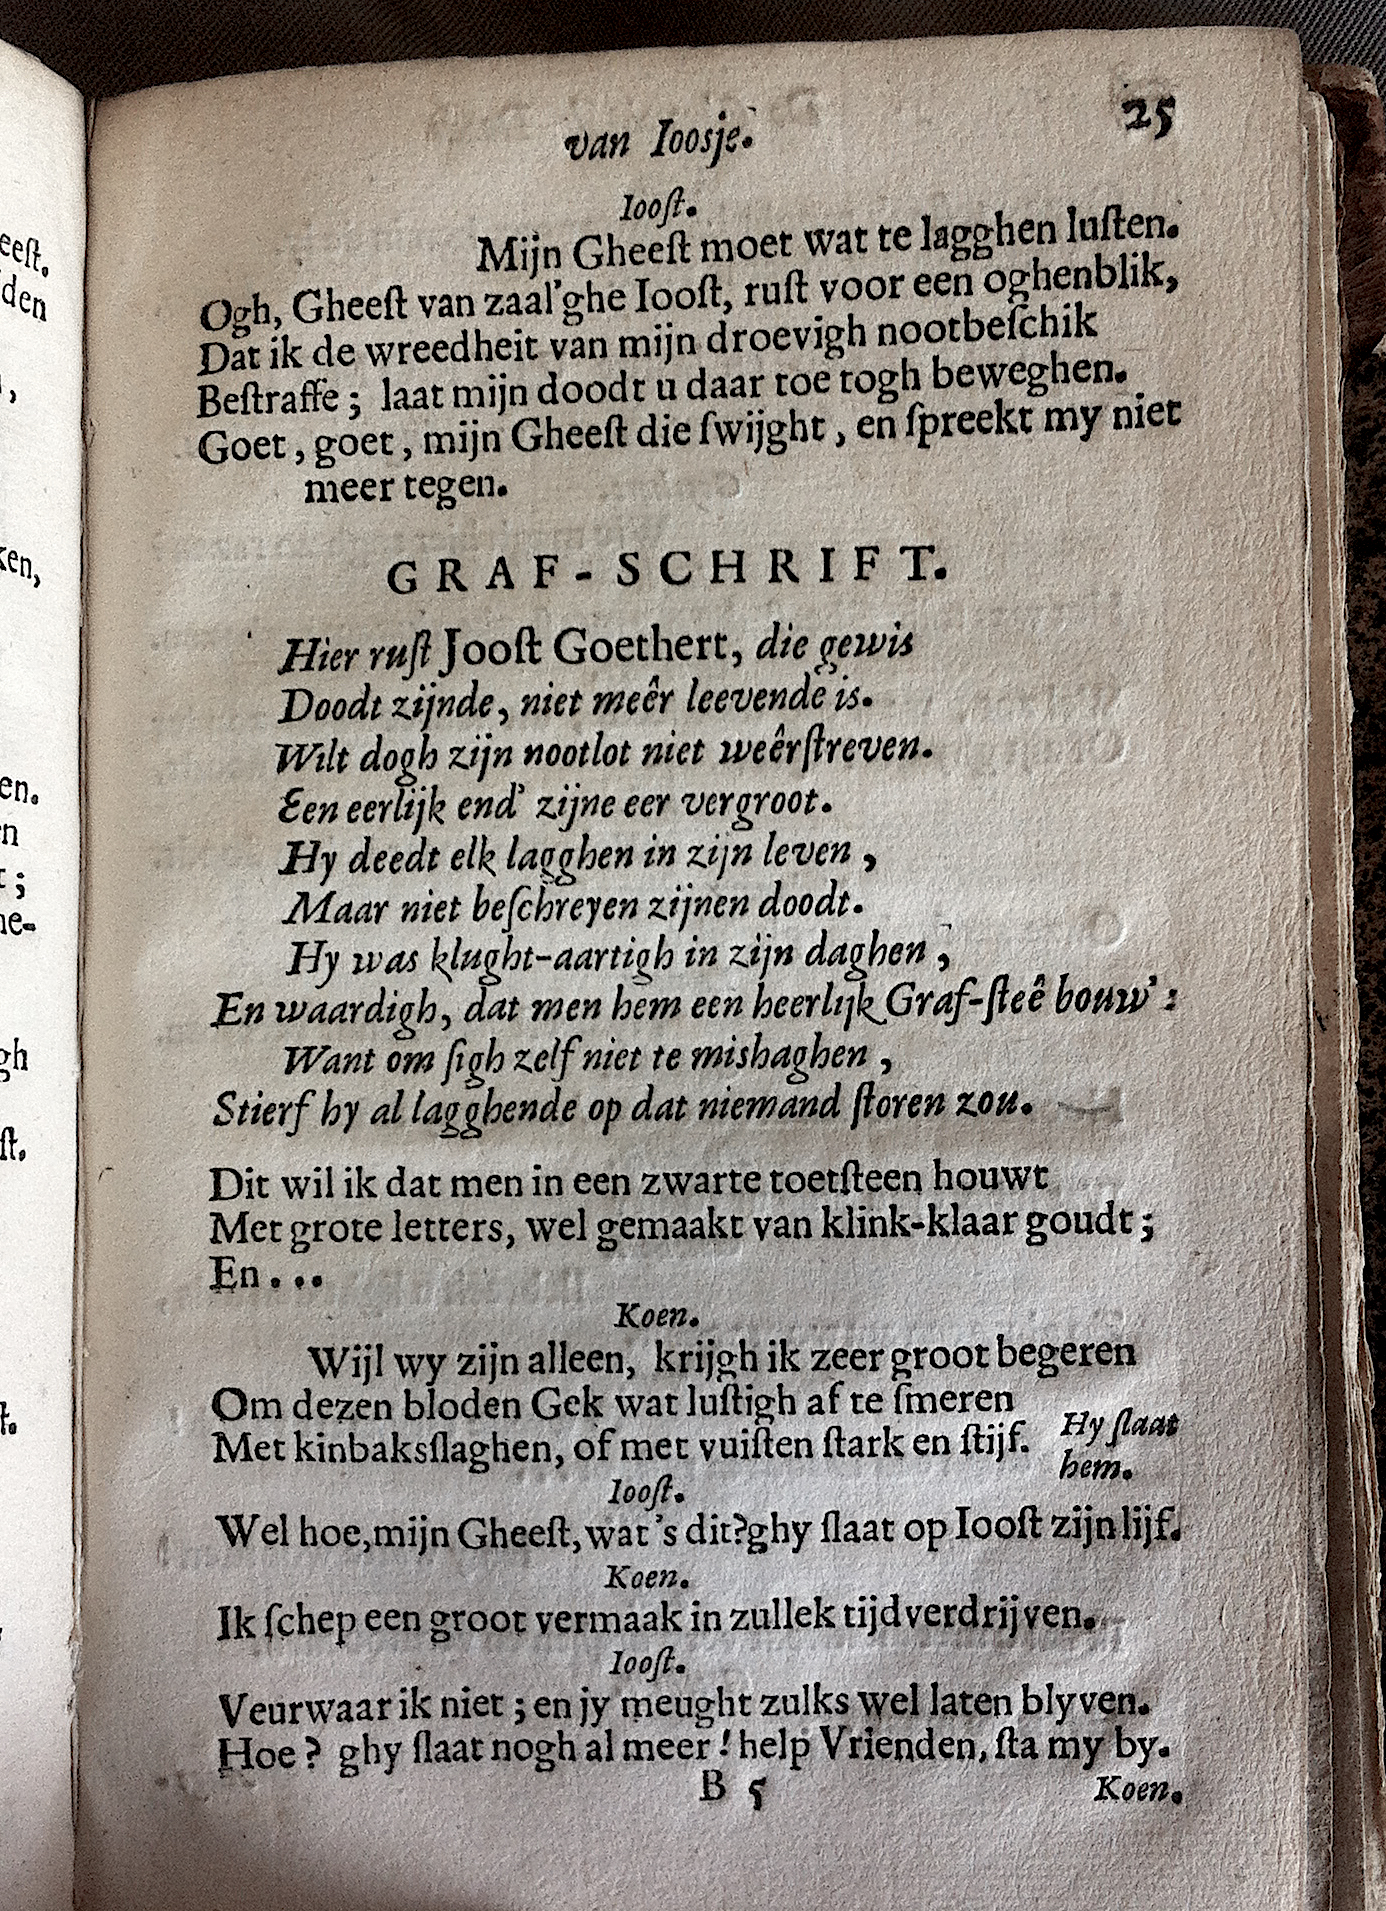 van Ioosje.
25
Iooſt.
Mijn Gheeſt moet wat te lagghen luſten.
Ogh, Gheeſt van zaal'ghe Iooſt, ruſt voor een oghenblik,
Dat ik de wreedheit van mijn droevigh nootbeſchik
Beſtraffe; laat mijn doodt u daar toe togh beweghen.
Goet, goet, mijn Gheeſt die ſwijght, en ſpreekt my niet
meer tegen.
GRAF-SCHRIFT.
Hier ruſt Jooſt Goethert, die gewis
Doodt zijnde, niet meêr leevende is.
Wilt dogh zijn nootlot niet weêrſtreven.
Een eerlijk end' zijne eer vergroot.
Hy deedt elk lagghen in zijn leven,
Maar niet beſchreyen zijnen doodt.
Hy was klught-aartigh in zijn daghen,
En waardigh, dat men hem een heerlijk Graf-ſteê bouw':
Want om ſigh zelf niet te mishaghen,
Stierf hy al lagghende op dat niemand ſtoren zou.
Dit wil ik dat men in een zwarte toetſteen houwt
Met grote letters, wel gemaakt van klink-klaar goudt;
En...
Koen.
Wijl wy zijn alleen, krijgh ik zeer groot begeren
Om dezen bloden Gek wat luſtigh af te ſmeren
Met kinbaksſlaghen, of met vuiſten ſtark en ſtijf. Hy ſlaat
hem.
Iooſt.
Wel hoe, mijn Gheeſt, wat's dit? ghy ſlaat op Iooſt zijn lijf.
Koen.
Ik ſchep een groot vermaak in zullek tijdverdrijven.
Iooſt.
Veurwaar ik niet; en jy meught zulks wel laten blyven.
Hoe? ghy ſlaat nogh al meer! help Vrienden, ſta my by.
B 5
Koen.